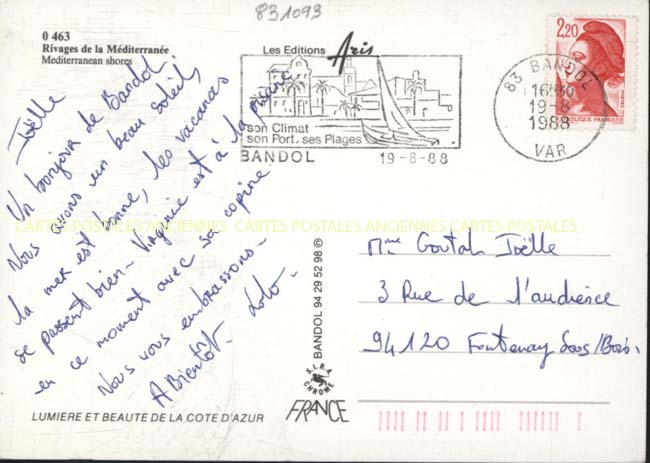 831093
0 463
Rivages de la Méditerranée
Mediterranean shores
Les Editions Aris
son Climat
son Port, ses Plages
BANDOL 19-8-88
2,20
83 BANDOL
16H30
19-8
1988
VAR
Joëlle
Un bonjour de Bandol.
Nous avons un beau soleil,
la mer est bonne, les vacances
se passent bien - Virginie est à la plage
en ce moment avec sa copine
Nous vous embrassons -
A Bientôt. Lolo -
CARTES POSTALES ANCIENNES CARTES POSTALES ANCIENNES CARTES POSTALES
Mme Goutal Joëlle
3 Rue de l'audience
94120 Fontenay Sous/Bois.
BANDOL 94 29 52 98 ©
FRANCE
LUMIERE ET BEAUTE DE LA COTE D'AZUR